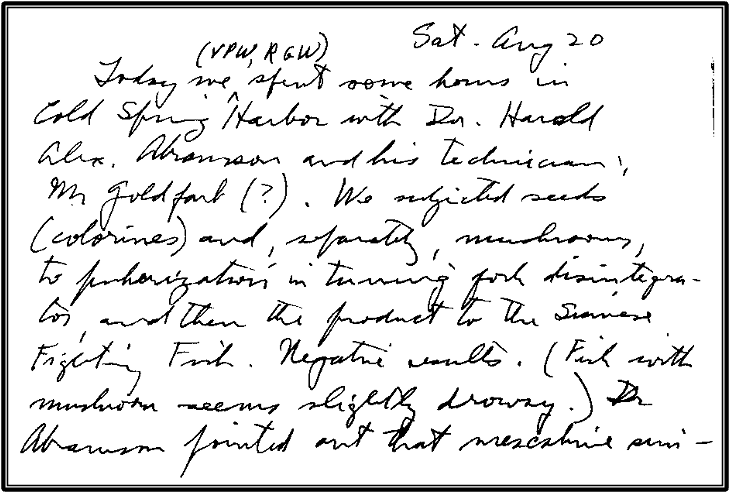 Sat. Aug 20
(VPW, RGW)
Today we ^ spent some hours in
Cold Spring Harbor with Dr. Harold
Alex. Abramson and his technician,
Mr Goldfarb (?). We subjected seeds
(colorines) and, separately, mushrooms,
to pulverization in tuning fork disintegra-
tor, and then the product to the Siamese
Fighting Fish. Negative results. (Fish with
mushroom seems slightly drowsy.) Dr
Abramson pointed out that mescaline simi-